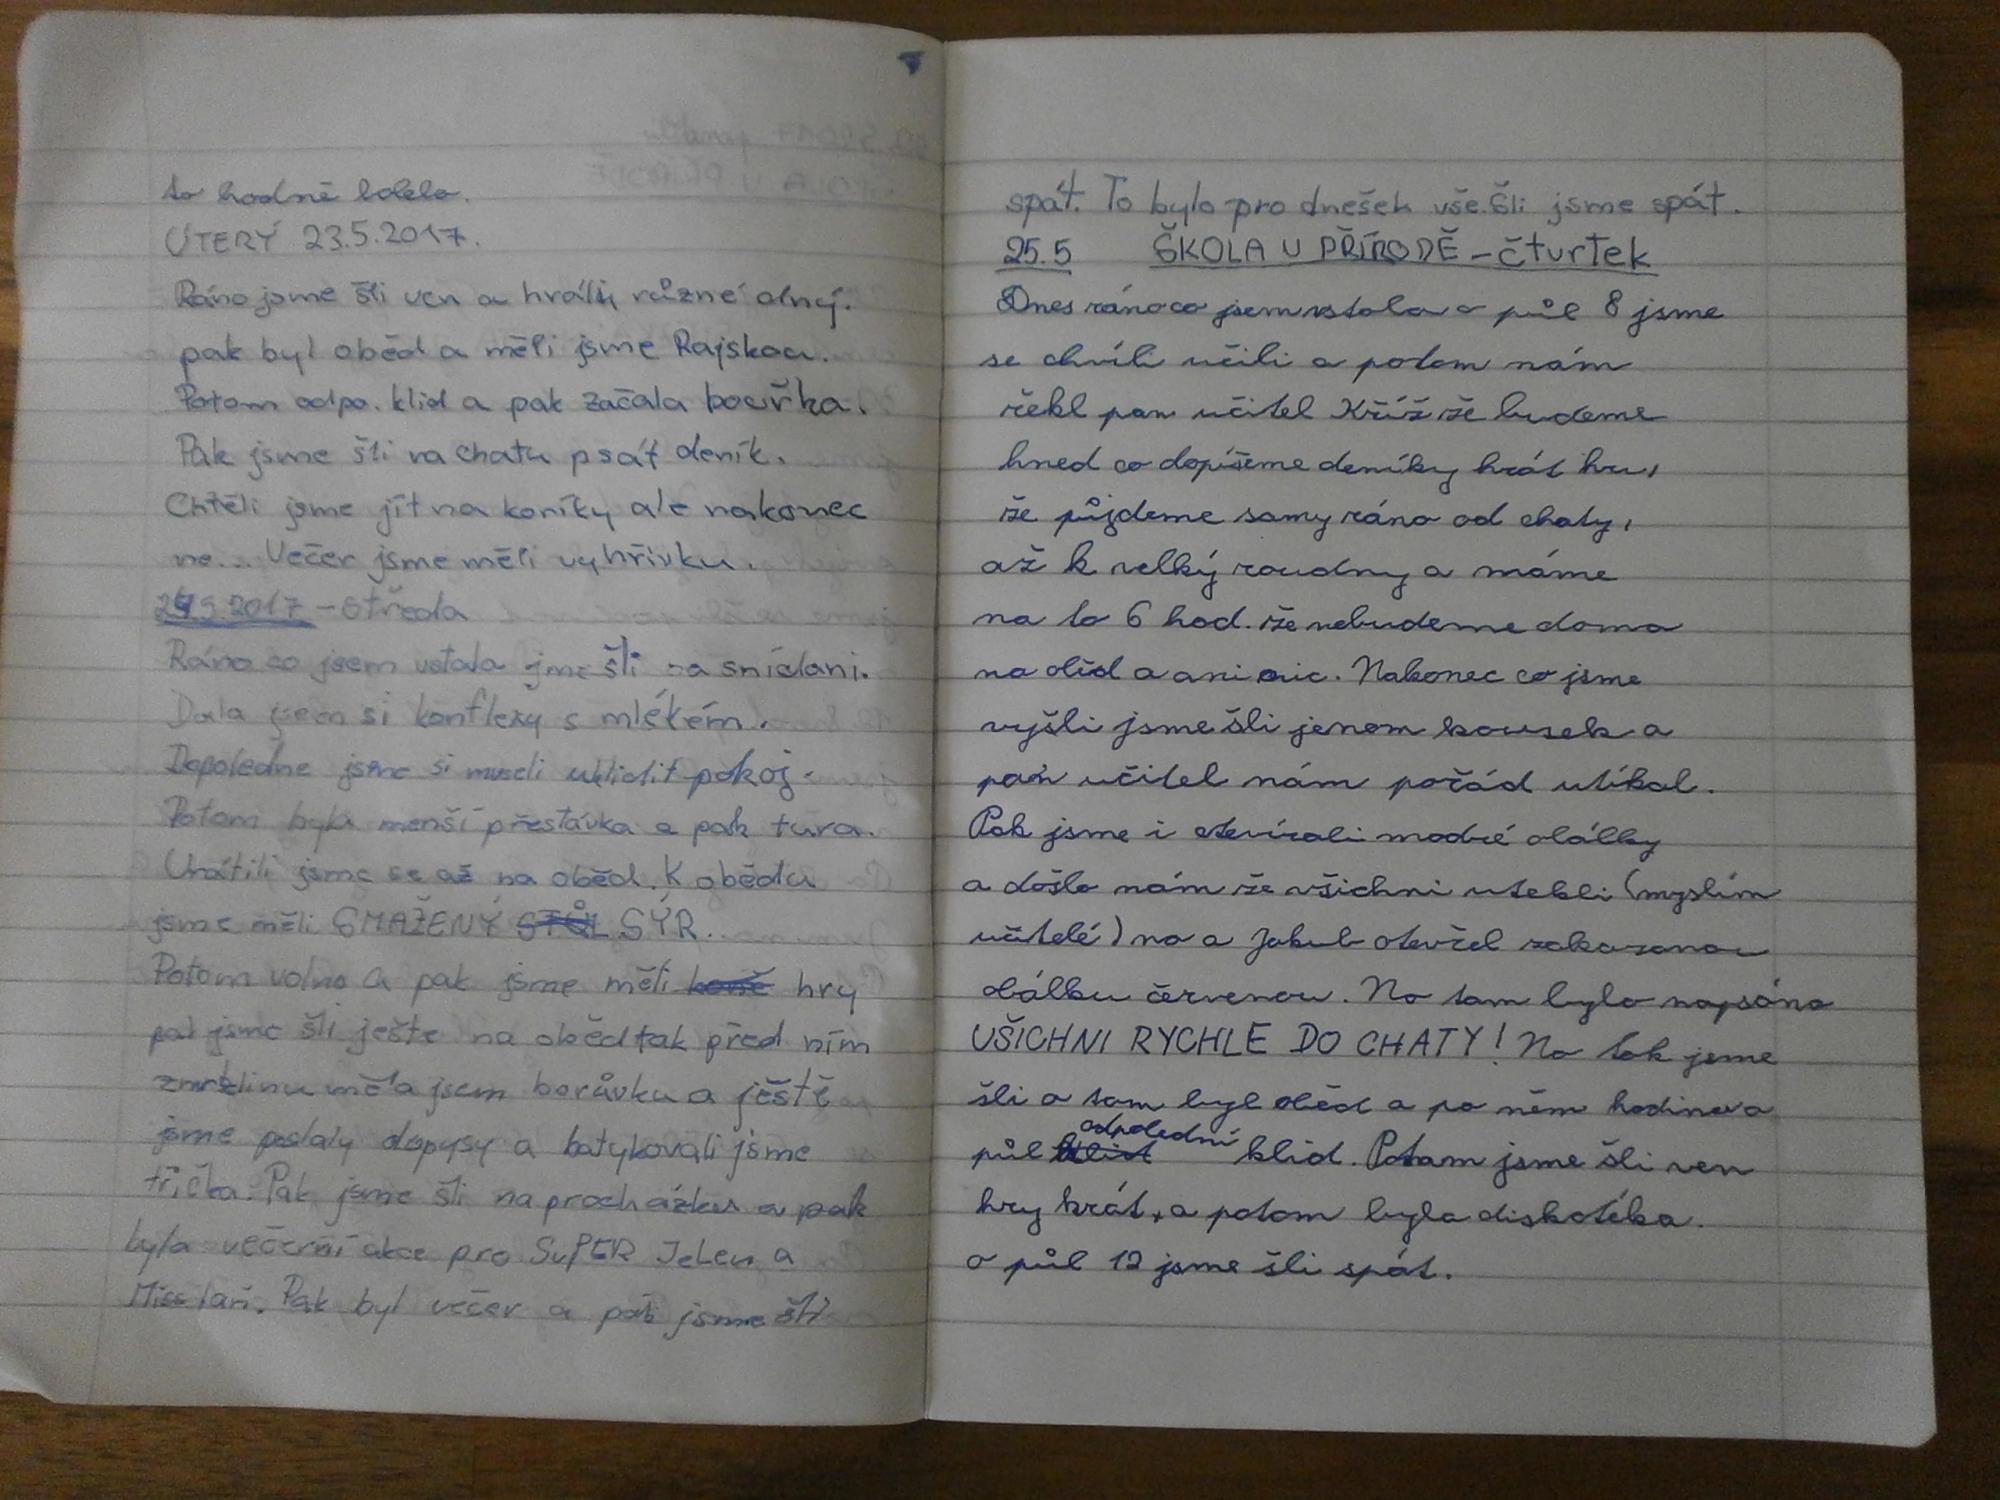 to hodně bolelo.
ÚTERÝ 23.5.2017.
Ráno jsme šli ven a hráli různé
pak byl oběd a měli jsme Rajskou.
Potom odpo. klid a pak začala bouřka.
Pak jsme šli na chatu psát deník.
Chtěli jsme jít na koníky ale nakonec
ne... Večer jsme měli vyhřívku.
24.5.2017 - středa
Ráno co jsem vstala jme šli na snídani.
Dala jsem si konflexy s mlékém.
Dopoledne jsme si museli uklidit pokoj.
Potom byla menší přestávka a pak túra.
Vrátili jsme se až na oběd. K obědu
jsme měli SMAŽENÝ STŮL SÝR.
Potom volno a pak jsme měli hry
pak jsme šli ješte na oběd tak před ním
zmrzlinu měla jsem borůvku a ještě
jsme poslaly dopysy a batykovali jsme
trička. Pak jsme šli na procházku a pak
byla večerní akce pro SuPER JeLen a
Miss laň. Pak byl večer a pak jsme šli
spát. To bylo pro dnešek vše. Šli jsme spát.
25.5 ŠKOLA V PŘÍRODĚ - čtvrtek
Dnes ráno co jsem vstala o půl 8 jsme
se chvíli učili a potom nám
řekl pan učitel Kříž že budeme
hned co dopíšeme deníky hrát hru,
že půjdeme samy ráno od chaty,
až k velký roudny a máme
na to 6 hod. že nebudeme doma
na oběd a ani nic. Nakonec co jsme
vyšli jsme šli jenom kousek a
pan učitel nám pořád utíkal.
Pak jsme i otevírali modré obálky
a došlo nám že všichni utekli (myslím
učitelé) no a Jakub otevřel zakazanou
obálku červenou. No tam bylo napsáno
VŠICHNI RYCHLE DO CHATY! No tak jsme
šli a tam byl oběd a po něm hodinu a
půl odpolední klid. Potam jsme šli ven
hry hrát, a potom byla diskotéka.
o půl 12 jsme šli spát.